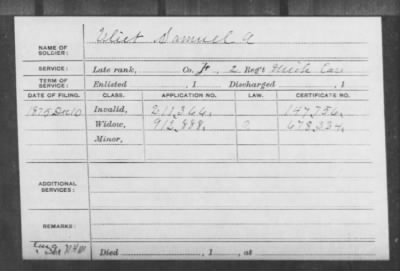 Vliet Samuel A
NAME OF
SOLDIER:
SERVICE: Late rank, Co. 2 Reg't Mich Cav
TERM OF
SERVICE: Enlisted , 1 Discharged , 1
DATE OF FILING. CLASS. APPLICATION NO. LAW. CERTIFICATE NO.
1875 Dec 10 Invalid, 211,366.
Widow, 912,888. 678,334.
Minor,
ADDITIONAL
SERVICES:
REMARKS:
Died , 1 , at